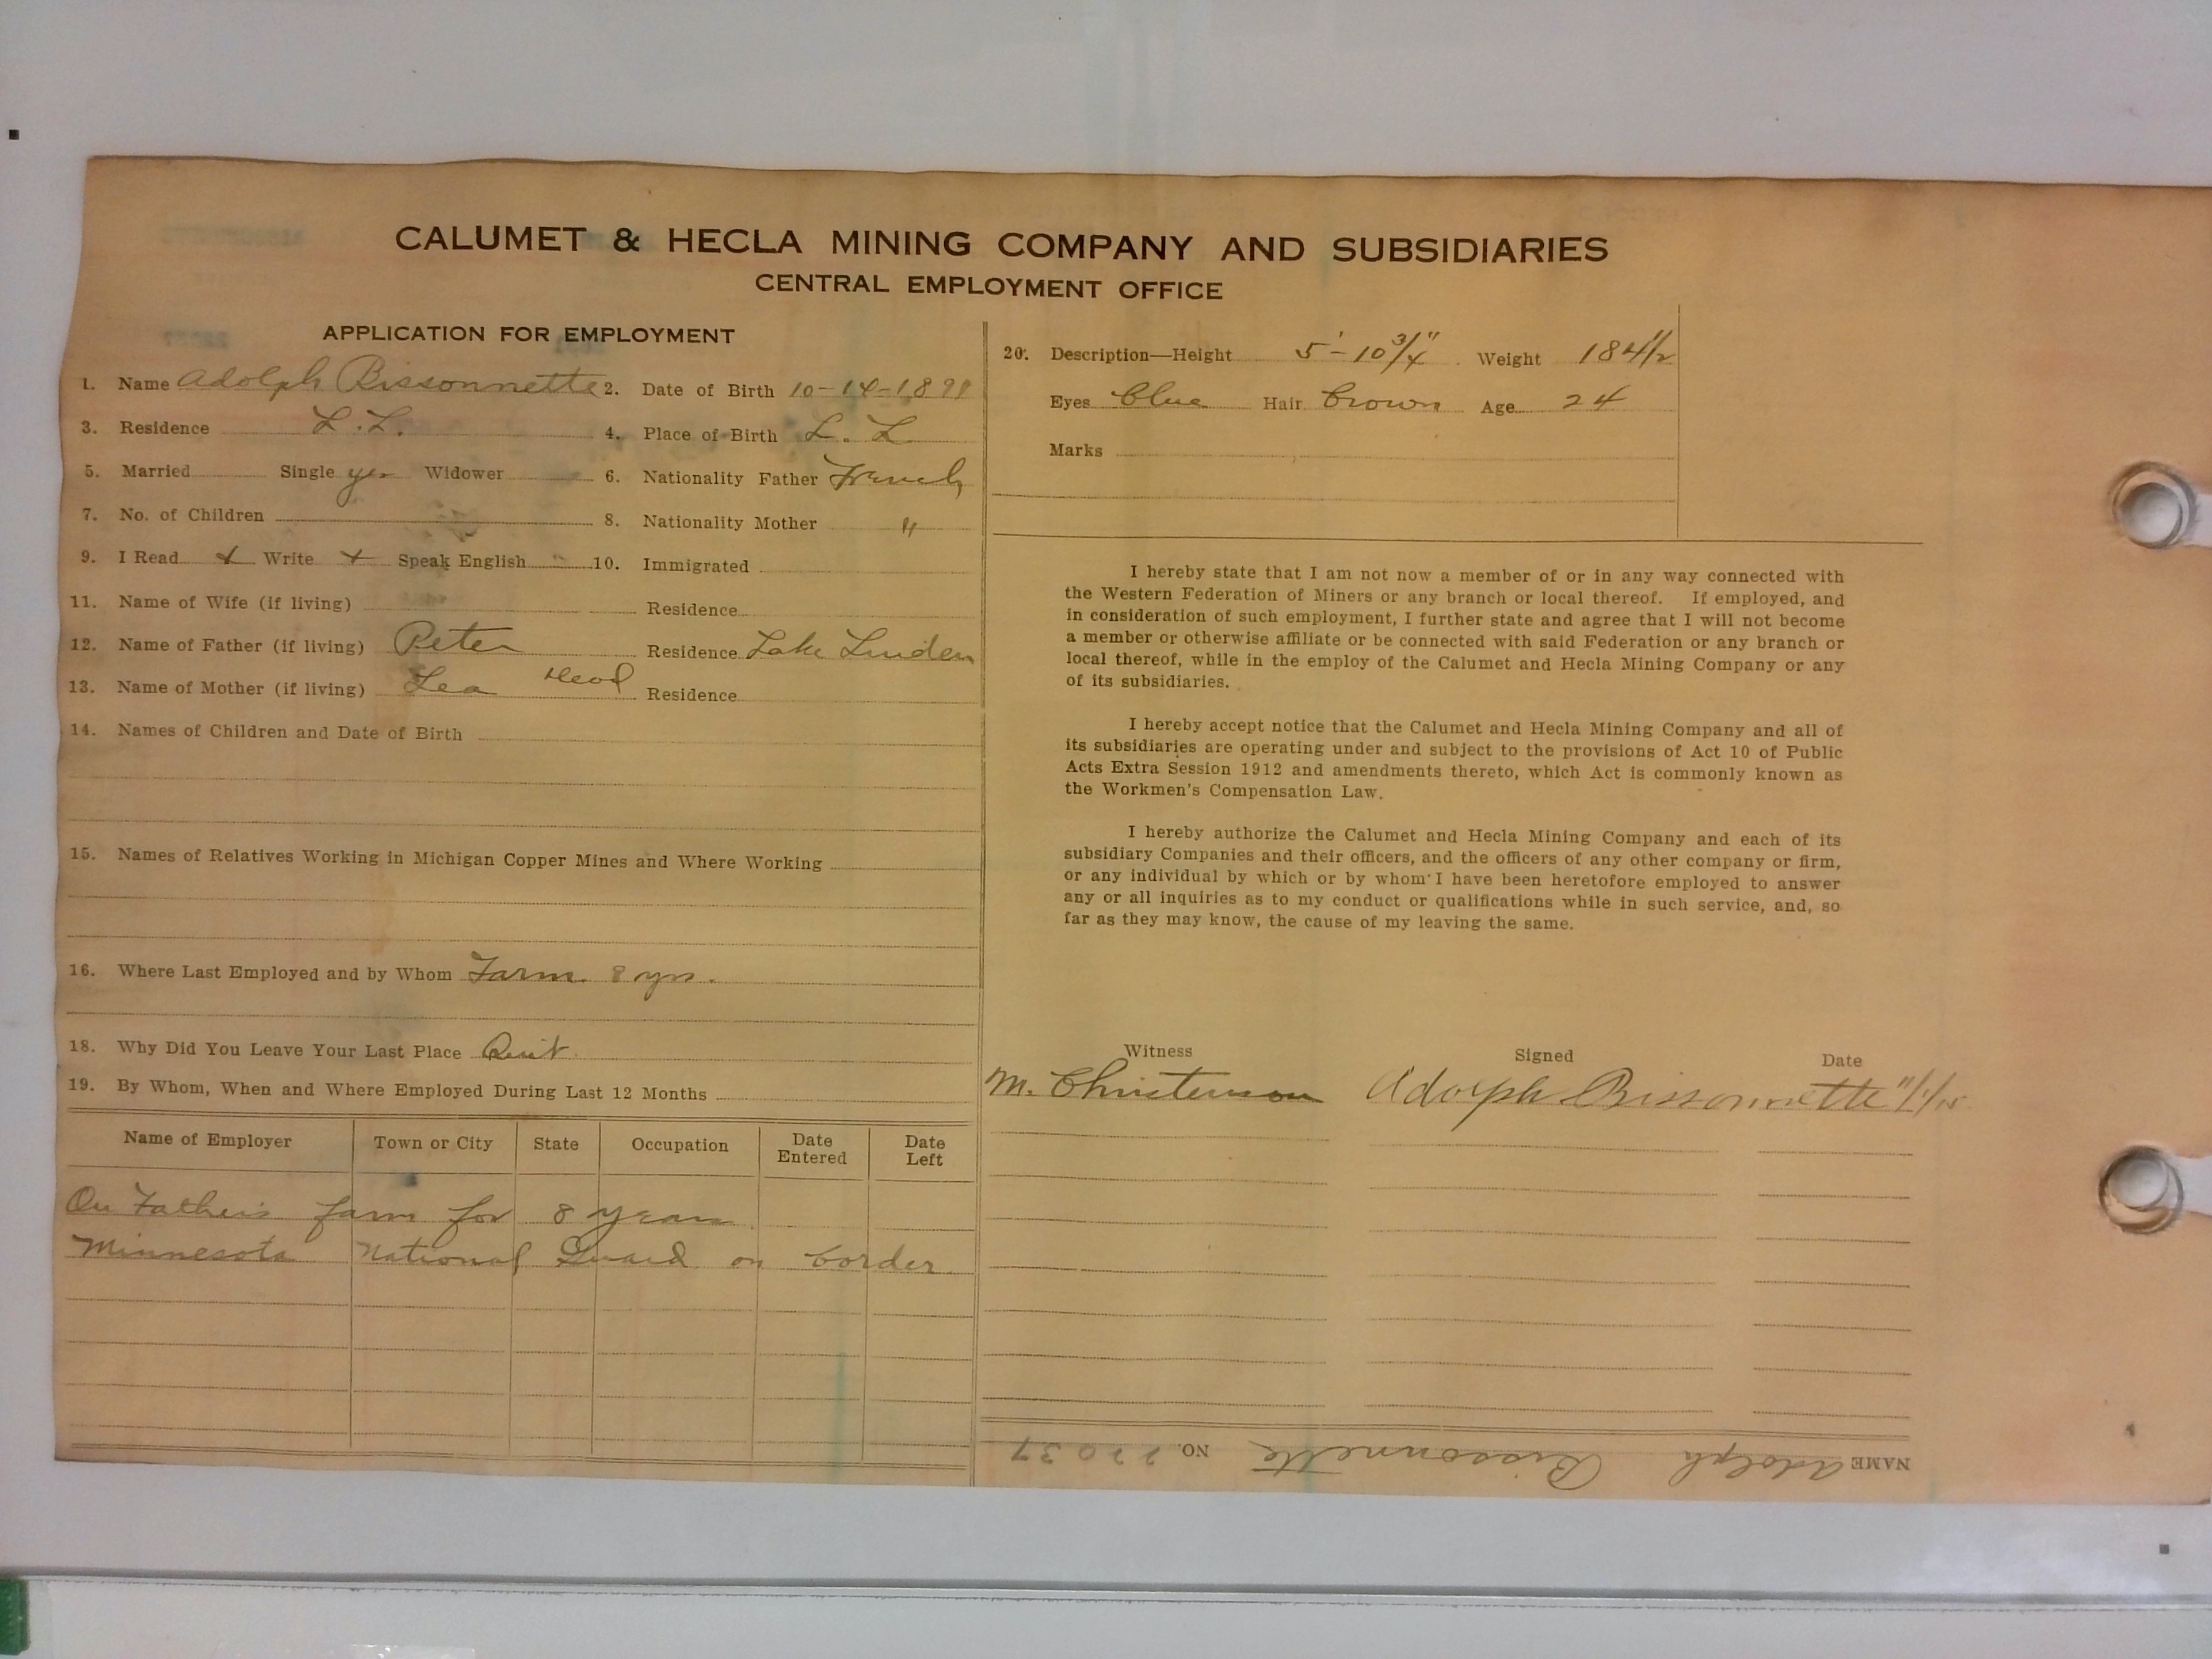 CALUMET & HECLA MINING COMPANY AND SUBSIDIARIES
CENTRAL EMPLOYMENT OFFICE
APPLICATION FOR EMPLOYMENT
1. Name Adolph Bissonnette 2. Date of Birth 10-14-1891
3. Residence L.L. 4. Place of Birth L. L.
5. Married Single yes Widower 6. Nationality Father French
7. No. of Children 8. Nationality Mother "
9. I Read x Write x Speak English " 10. Immigrated
11. Name of Wife (if living) Residence
12. Name of Father (if living) Peter Residence Lake Linden
13. Name of Mother (if living) Lea Dead Residence
14. Names of Children and Date of Birth
15. Names of Relatives Working in Michigan Copper Mines and Where Working
16. Where Last Employed and by Whom Farm 8 yrs.
18. Why Did You Leave Your Last Place Quit
19. By Whom, When and Where Employed During Last 12 Months
Name of Employer Town or City State Occupation Date Entered Date Left
On Father's farm for 8 years
Minnesota National Guard on border
20. Description—Height 5'-10 3/4" Weight 184 1/2
Eyes blue Hair brown Age 24
Marks
I hereby state that I am not now a member of or in any way connected with
the Western Federation of Miners or any branch or local thereof. If employed, and
in consideration of such employment, I further state and agree that I will not become
a member or otherwise affiliate or be connected with said Federation or any branch or
local thereof, while in the employ of the Calumet and Hecla Mining Company or any
of its subsidiaries.
I hereby accept notice that the Calumet and Hecla Mining Company and all of
its subsidiaries are operating under and subject to the provisions of Act 10 of Public
Acts Extra Session 1912 and amendments thereto, which Act is commonly known as
the Workmen's Compensation Law.
I hereby authorize the Calumet and Hecla Mining Company and each of its
subsidiary Companies and their officers, and the officers of any other company or firm,
or any individual by which or by whom I have been heretofore employed to answer
any or all inquiries as to my conduct or qualifications while in such service, and, so
far as they may know, the cause of my leaving the same.
Witness Signed Date
M. Christenson Adolph Bissonnette
NAME Adolph Bissonnette NO. 22037